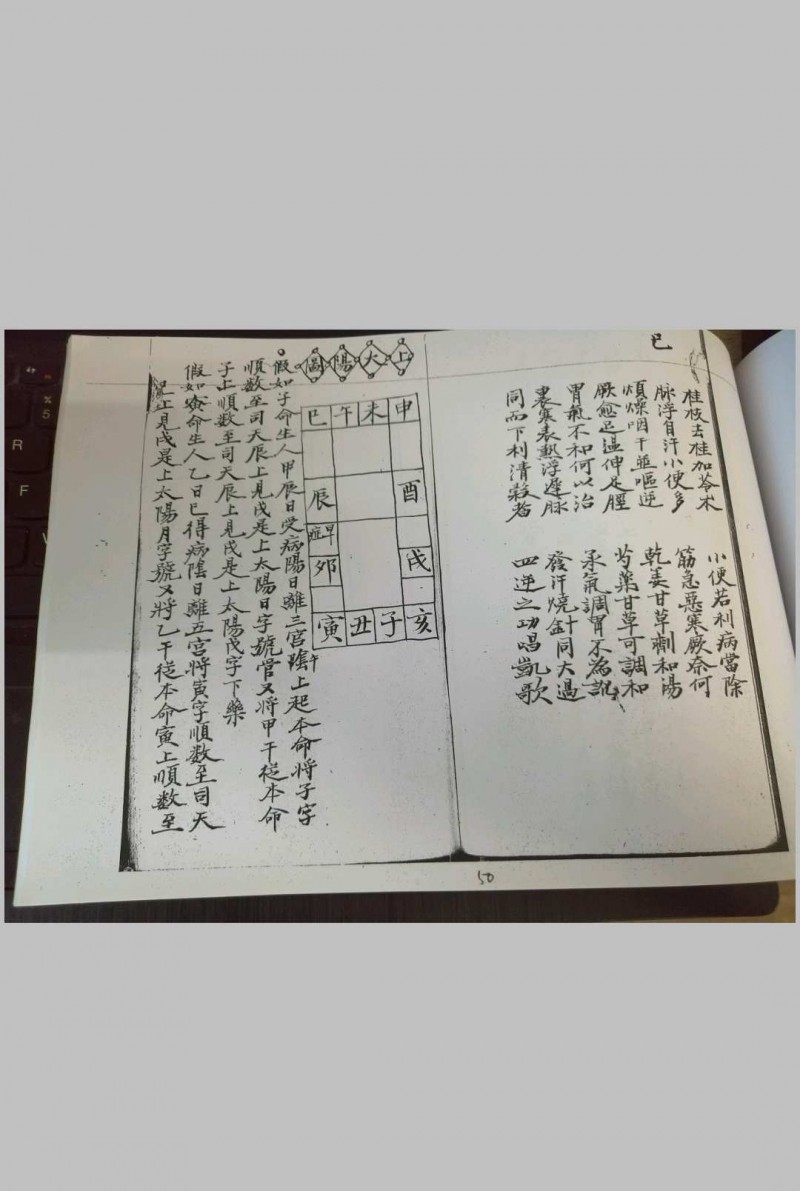 巳
桂枝去桂加苓朮
脉浮自汗小便多
煩燥咽干並嘔逆
厥愈足溫伸足脛
胃氣不和何以治
裏寒表熱浮遲脉
同而下利清穀者
小便若利病當除
筋急惡寒厥奈何
乾姜甘草劑和湯
芍藥甘草可調和
承氣調胃不為訛
發汗燒針同大過
四逆之功唱凱歌
上太陽圖
巳午未申
辰酉
卯戌
寅丑子亥
假如子命生人甲辰日受病陽日離三宮上起本命將子字
午
順数至司天辰上見戌是上太陽日字號官又將甲干從本命
子上順数至司天辰上見戌是上太陽戊字下藥
假如寅命生人乙日巳得病陰日離五宮將寅字順数至司天
上見戌是上太陽月字號又將乙干從本命寅上順数至
50
R
F
%
5